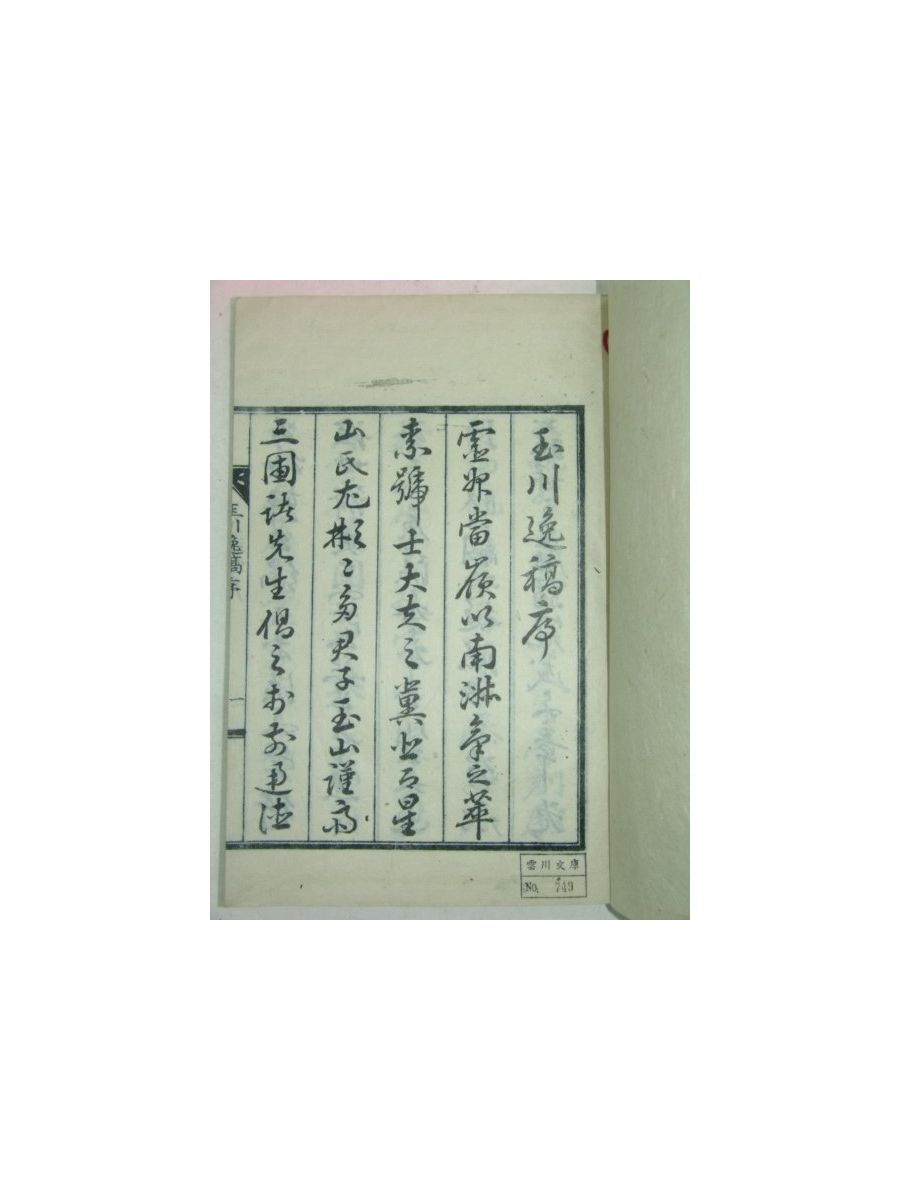 玉川逸稿序
靈炤當嶺以南淋氣之萃
素號士大夫之冀北而星
山氏尤彬〻多君子玉山謹齋
三圃諸先生倡之於前通德
玉川逸稿序
一
雲川文庫
No. 749